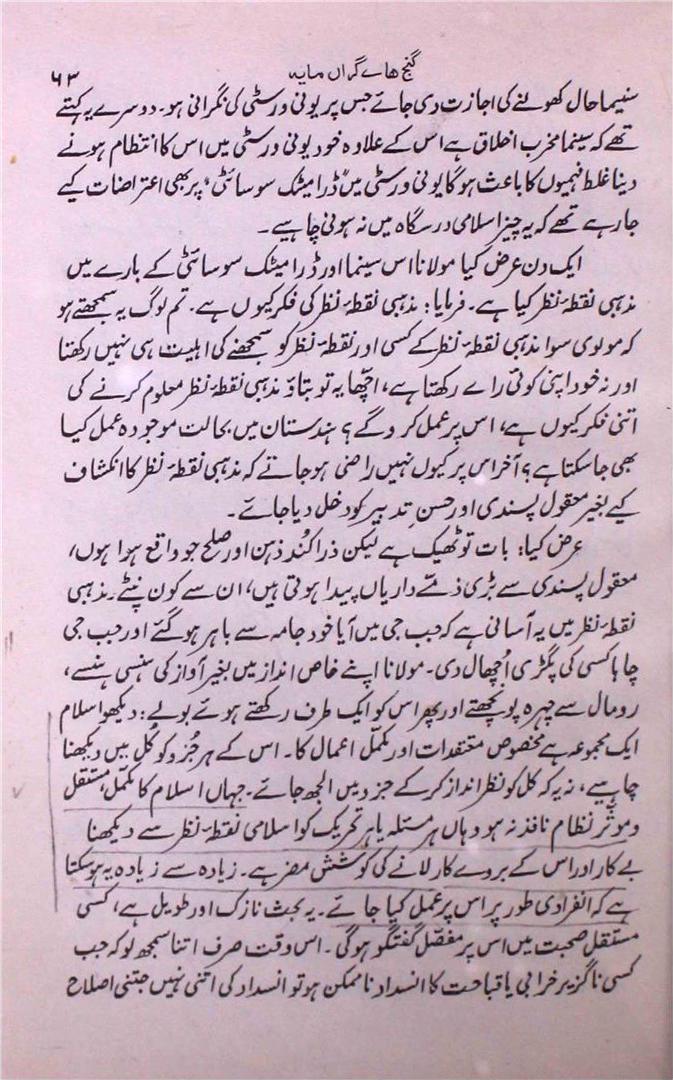 گنج ھاے گراں مایہ ۶۳
سنیما حال کھولنے کی اجازت دی جائے جس پر یونی ورسٹی کی نگرانی ہو۔ دوسرے یہ کہتے
تھے کہ سینما مخرب اخلاق ہے اس کے علاوہ خود یونی ورسٹی میں اس کا انتظام ہونے
دینا غلط فہمیوں کا باعث ہوگا یونی ورسٹی میں "ڈرامیٹک سوسائٹی" پر بھی اعتراضات کیے
جا رہے تھے کہ یہ چیز اسلامی درسگاہ میں نہ ہونی چاہیے۔
ایک دن عرض کیا مولانا اس سینما اور ڈرامیٹک سوسائٹی کے بارے میں
مذہبی نقطۂ نظر کیا ہے۔ فرمایا: مذہبی نقطۂ نظر کی فکر کیوں ہے۔ تم لوگ یہ سمجھتے ہو
کہ مولوی سوا مذہبی نقطۂ نظر کے کسی اور نقطۂ نظر کو سمجھنے کی اہلیت ہی نہیں رکھتا
اور نہ خود اپنی کوئی راے رکھتا ہے، اچھا یہ تو بتاؤ مذہبی نقطۂ نظر معلوم کرنے کی
اتنی فکر کیوں ہے، اس پر عمل کروگے؟ ہندستان میں بحالت موجودہ عمل کیا
بھی جاسکتا ہے؟ آخر اس پر کیوں نہیں راضی ہوجاتے کہ مذہبی نقطۂ نظر کا انکشاف
کیے بغیر معقول پسندی اور حسن تدبیر کو دخل دیا جائے۔
عرض کیا: بات تو ٹھیک ہے لیکن ذرا کُند ذہن اور صلح جو واقع ہوا ہوں،
معقول پسندی سے بڑی ذمّے داریاں پیدا ہوتی ہیں، ان سے کون نپٹے۔ مذہبی
نقطۂ نظر میں یہ آسانی ہے کہ جب جی میں آیا خود جامہ سے باہر ہوگئے اور جب جی
چاہا کسی کی پگڑی اُچھال دی۔ مولانا اپنے خاص انداز میں بغیر آواز کی ہنسی ہنسے،
رومال سے چہرہ پونچھتے اور پھر اس کو ایک طرف رکھتے ہوئے بولے: دیکھو اسلام
ایک مجموعہ ہے مخصوص معتقدات اور مکمل اعمال کا۔ اس کے ہر جُزو کو کُل میں دیکھنا
چاہیے، نہ یہ کہ کل کو نظر انداز کرکے جزو میں الجھ جائے۔ جہاں اسلام کا مکمل، مستقل
و موثر نظام نافذ نہ ہو وہاں ہر مسئلہ یا ہر تحریک کو اسلامی نقطۂ نظر سے دیکھنا
بے کار اور اس کے بروے کار لانے کی کوشش مضر ہے۔ زیادہ سے زیادہ یہ ہوسکتا
ہے کہ انفرادی طور پر اس پر عمل کیا جائے۔ یہ بحث نازک اور طویل ہے، کسی
مستقل صحبت میں اس پر مفصّل گفتگو ہوگی۔ اس وقت صرف اتنا سمجھ لو کہ جب
کسی ناگزیر خرابی یا قباحت کا انسداد ناممکن ہو تو انسداد کی اتنی نہیں جتنی اصلاح